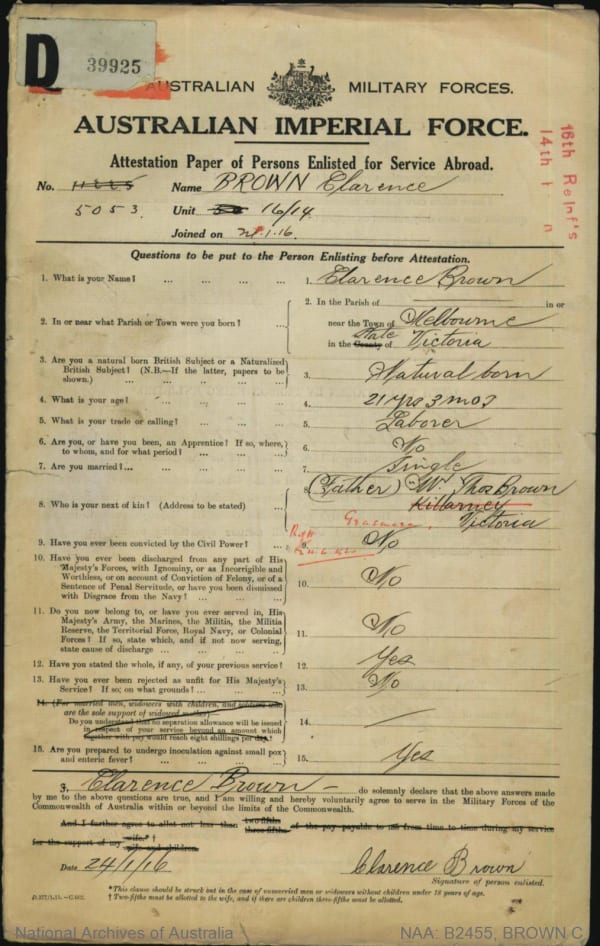 D
39925
AUSTRALIAN MILITARY FORCES.
AUSTRALIAN IMPERIAL FORCE.
16th Reinf's
14th
Attestation Paper of Persons Enlisted for Service Abroad.
No. Name BROWN Clarence
5053. Unit 16/14
Joined on .1.16.
Questions to be put to the Person Enlisting before Attestation.
1. What is your Name? ... ... ... ... 1. Clarence Brown
2. In or near what Parish or Town were you born? ... 2. In the Parish of in or
near the Town of Melbourne
in the County of State Victoria
3. Are you a natural born British Subject or a Naturalized
British Subject? (N.B.—If the latter, papers to be
shown.) ... ... ... ... 3. Natural born
4. What is your age? ... ... ... ... 4. 21 yrs 3 mos
5. What is your trade or calling? ... ... ... 5. Laborer
6. Are you, or have you been, an Apprentice? If so, where,
to whom, and for what period? ... ... ... 6. No
7. Are you married?... ... ... ... 7. Single
8. Who is your next of kin? (Address to be stated) ... 8. (Father) Mr. Thos Brown
Killarney
Grasmere, Victoria
9. Have you ever been convicted by the Civil Power? ... 9. No
10. Have you ever been discharged from any part of His
Majesty's Forces, with Ignominy, or as Incorrigible and
Worthless, or on account of Conviction of Felony, or of a
Sentence of Penal Servitude, or have you been dismissed
with Disgrace from the Navy? ... ... ... 10. No
11. Do you now belong to, or have you ever served in, His
Majesty's Army, the Marines, the Militia, the Militia
Reserve, the Territorial Force, Royal Navy, or Colonial
Forces? If so, state which, and if not now serving,
state cause of discharge ... ... ... 11. No
12. Have you stated the whole, if any, of your previous service? 12. Yes
13. Have you ever been rejected as unfit for His Majesty's
Service? If so; on what grounds? ... ... ... 13. No
14. (For married men, widowers with children, and soldiers who
are the sole support of widowed mother)
Do you understand that no separation allowance will be issued
in respect of your service beyond an amount which
together with pay would reach eight shillings per day? 14. —
15. Are you prepared to undergo inoculation against small pox
and enteric fever? ... ... ... 15. Yes
I, Clarence Brown – do solemnly declare that the above answers made
by me to the above questions are true, and I am willing and hereby voluntarily agree to serve in the Military Forces of the
Commonwealth of Australia within or beyond the limits of the Commonwealth.
And I further agree to allot not less than two-fifths three-fifths of the pay payable to me from time to time during my service
for the support of my wife.* † wife and children.
Date 24/1/16 Clarence Brown
Signature of person enlisted.
*This clause should be struck out in the case of unmarried men or widowers without children under 18 years of age.
† Two-fifths must be allotted to the wife, and if there are children three-fifths must be allotted.
National Archives of Australia NAA: B2455, BROWN C